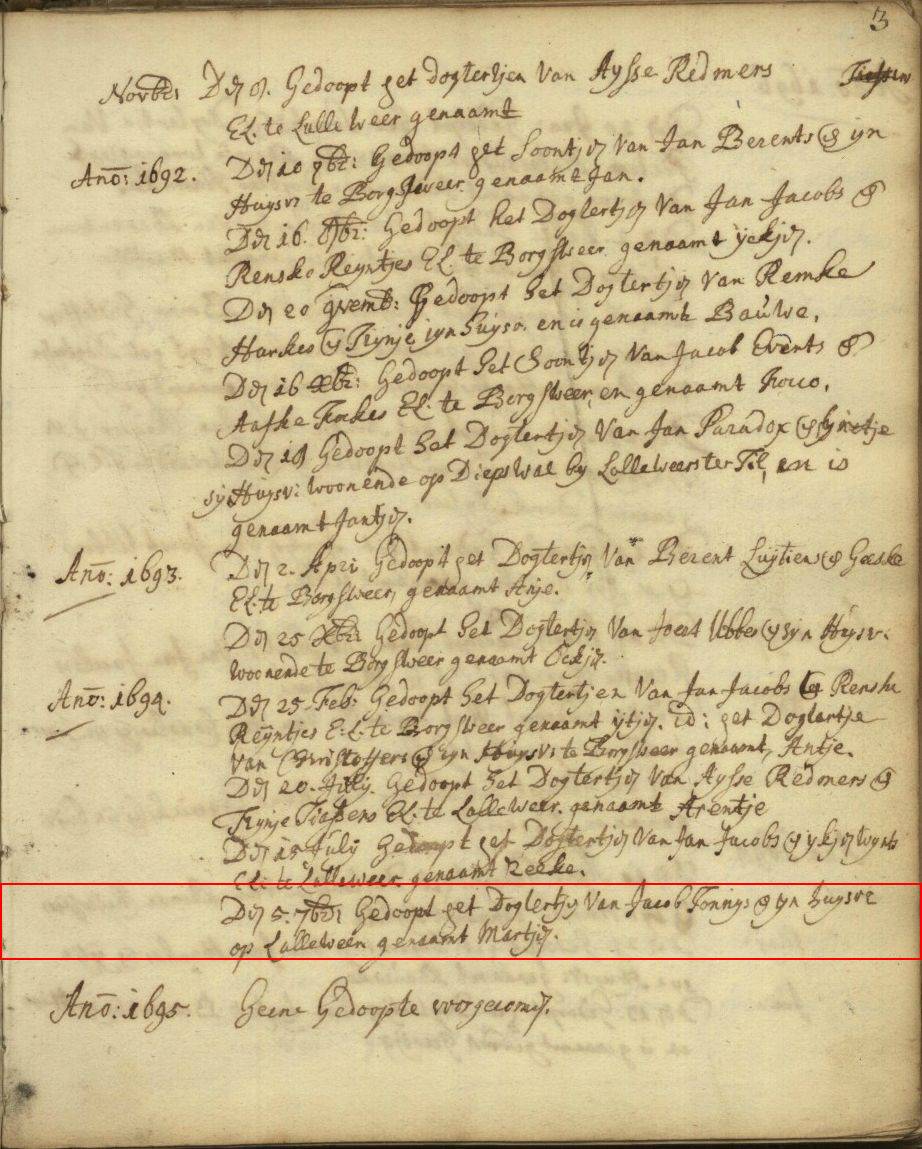 3
Novbr: Den 8. Gedoopt het dogtertjen Van Aysse Redmers
El. te Lalleweer genaamt
Ano: 1692. Den 10 7br: Gedoopt het Soontjen Van Jan Berents & zyn
Huysvr te Borgsweer genaamt Jan.
Den 16. Gedoopt het Dogtertjen Van Jan Jacobs &
Rensko Reyntjes El. te Borgsweer genaamt ijekjen.
Den 20 Gedoopt het Dogtertjen Van Remke
Harkes & Trynje zyn huysvr. en is genaamt Bauwe.
Den 16 Xbr: Gedoopt het Soontjen Van Jacob Everts &
Aafke El. te Borgsweer, en genaamt
Den 18 Gedoopt het Dogtertjen Van Jan Paradox &
syn Huysv: woonende op Diepswal by Lalleweerster Til, en is
genaamt Jantjen.
Ano: 1693. Den 2. Apri Gedoopt het Dogtertjen Van Berent Luytiens & Geeske
El. te Borgsweer, genaamt Anje.
Den 25 Xbr: Gedoopt het Dogtertjen Van Ubbes & zyn Huysv:
woonende te Borgsweer genaamt
Ano: 1694. Den 25 Feb: Gedoopt het Dogtertjen Van Jan Jacobs &
Reyntjes E.L. te Borgsweer genaamt ijtjen. id: het Dogtertje
van Christoffers & zyn Huysvr te Borgsweer genaamt, Antje.
Den 20. Gedoopt het Dogtertjen Van Aysse Redmers &
Trynje El. te Lalleweer. genaamt Arentje
Den 15 July Gedoopt het Dogtertjen Van Jan Jacobs &
El. te Lalleweer. genaamt
Den 5. 7br: Gedoopt het Dogtertjen Van Jacob Tonnys & zyn huysve
op Lalleween genaamt Martjen.
Ano: 1695. Geene Gedoopte